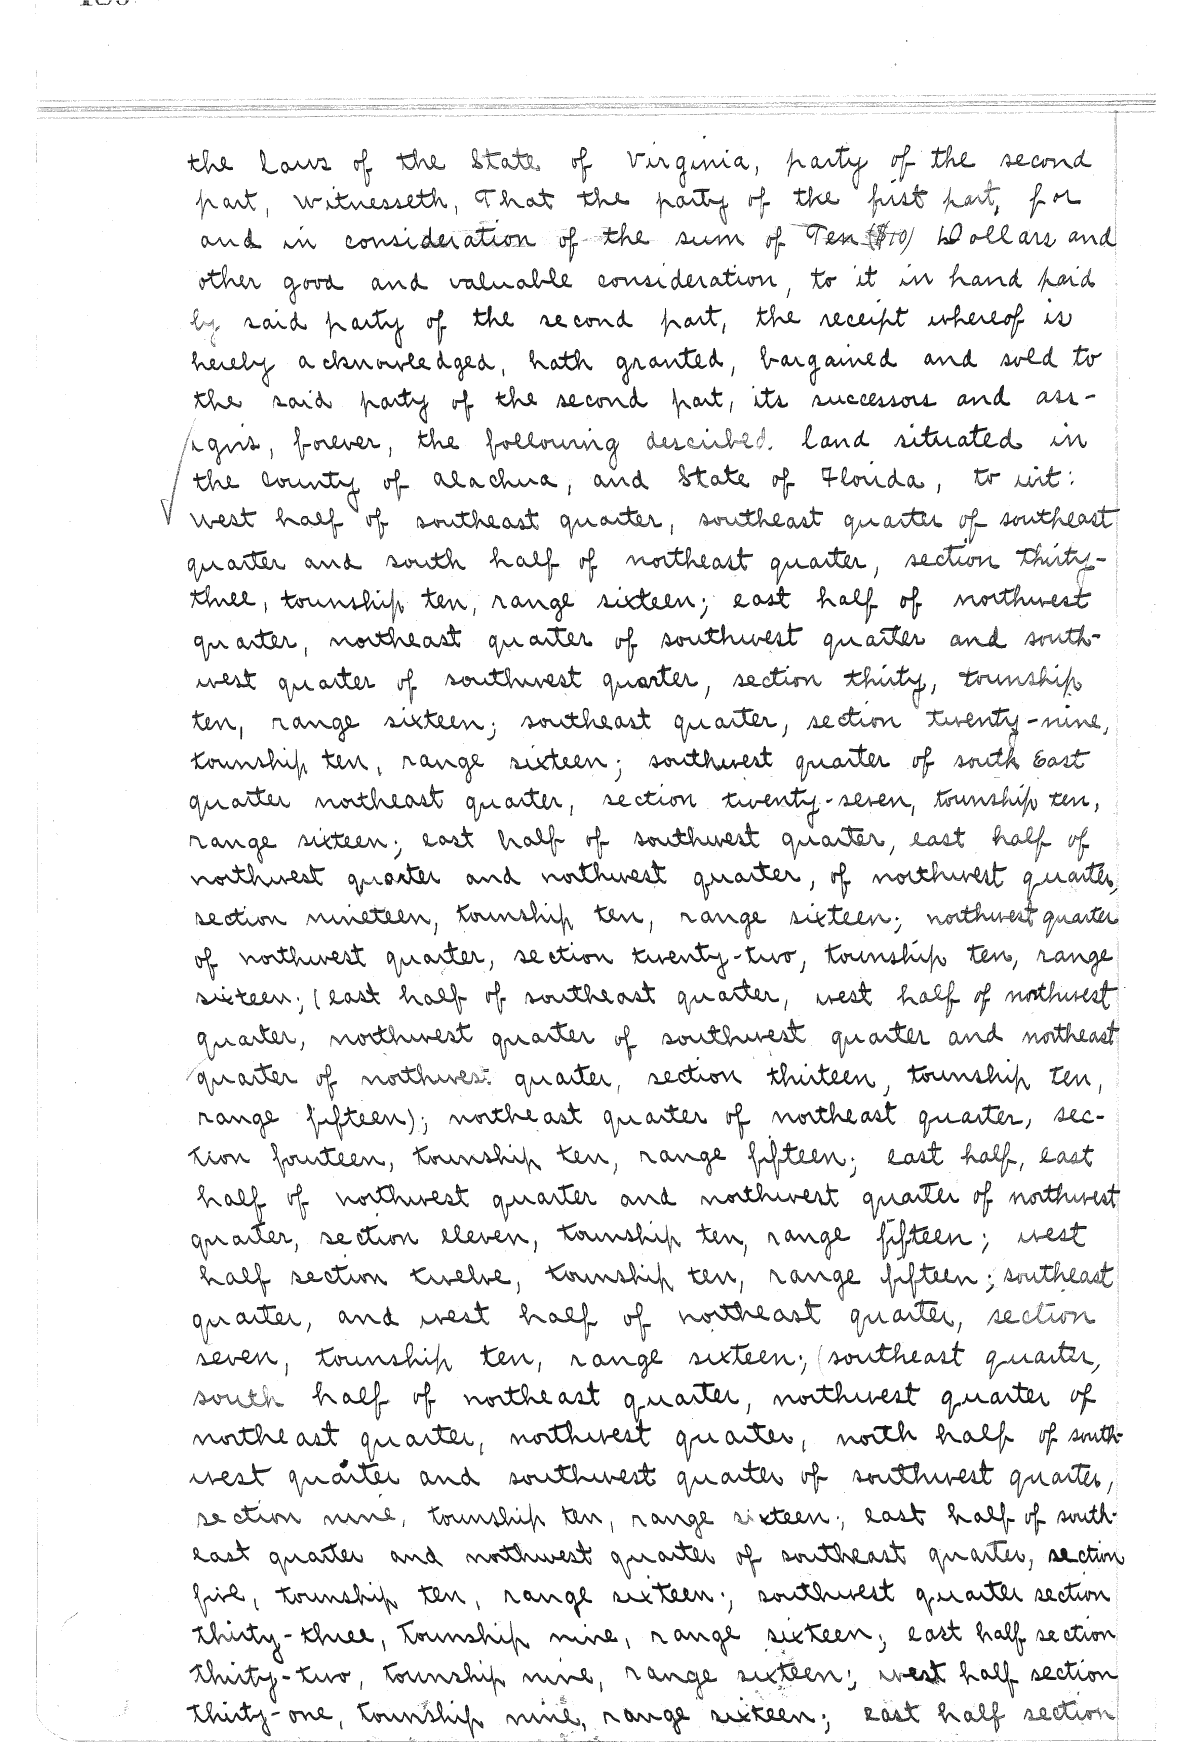 the laws of the State of Virginia, party of the second
part, witnesseth, That the party of the first part, for
and in consideration of the sum of Ten ($10) Dollars and
other good and valuable consideration, to it in hand paid
by said party of the second part, the receipt whereof is
hereby acknowledged, hath granted, bargained and sold to
the said party of the second part, its successors and ass-
igns, forever, the following described land situated in
the County of Alachua, and State of Florida, to wit:
West half of southeast quarter, southeast quarter of southeast
quarter and south half of northeast quarter, section thirty-
three, township ten, range sixteen; east half of northwest
quarter, northeast quarter of southwest quarter and south-
west quarter of southwest quarter, section thirty, township
ten, range sixteen; southeast quarter, section twenty-nine,
township ten, range sixteen; southwest quarter of south East
quarter northeast quarter, section twenty-seven, township ten,
range sixteen; east half of southwest quarter, east half of
northwest quarter and northwest quarter, of northwest quarter,
section nineteen, township ten, range sixteen; northwest quarter
of northwest quarter, section twenty-two, township ten, range
sixteen; (east half of southeast quarter, west half of northwest
quarter, northwest quarter of southwest quarter and northeast
quarter of northwest quarter, section thirteen, township ten,
range fifteen); northeast quarter of northeast quarter, sec-
tion fourteen, township ten, range fifteen; east half, east
half of northwest quarter and northwest quarter of northwest
quarter, section eleven, township ten, range fifteen; west
half section twelve, township ten, range fifteen; southeast
quarter, and west half of northeast quarter, section
seven, township ten, range sixteen; (southeast quarter,
south half of northeast quarter, northwest quarter of
northeast quarter, northwest quarter, north half of south-
west quarter and southwest quarter of southwest quarter,
section nine, township ten, range sixteen; east half of south-
east quarter and northwest quarter of southeast quarter, section
five, township ten, range sixteen; southwest quarter section
thirty-three, township nine, range sixteen; east half section
thirty-two, township nine, range sixteen; west half section
thirty-one, township nine, range sixteen; east half section